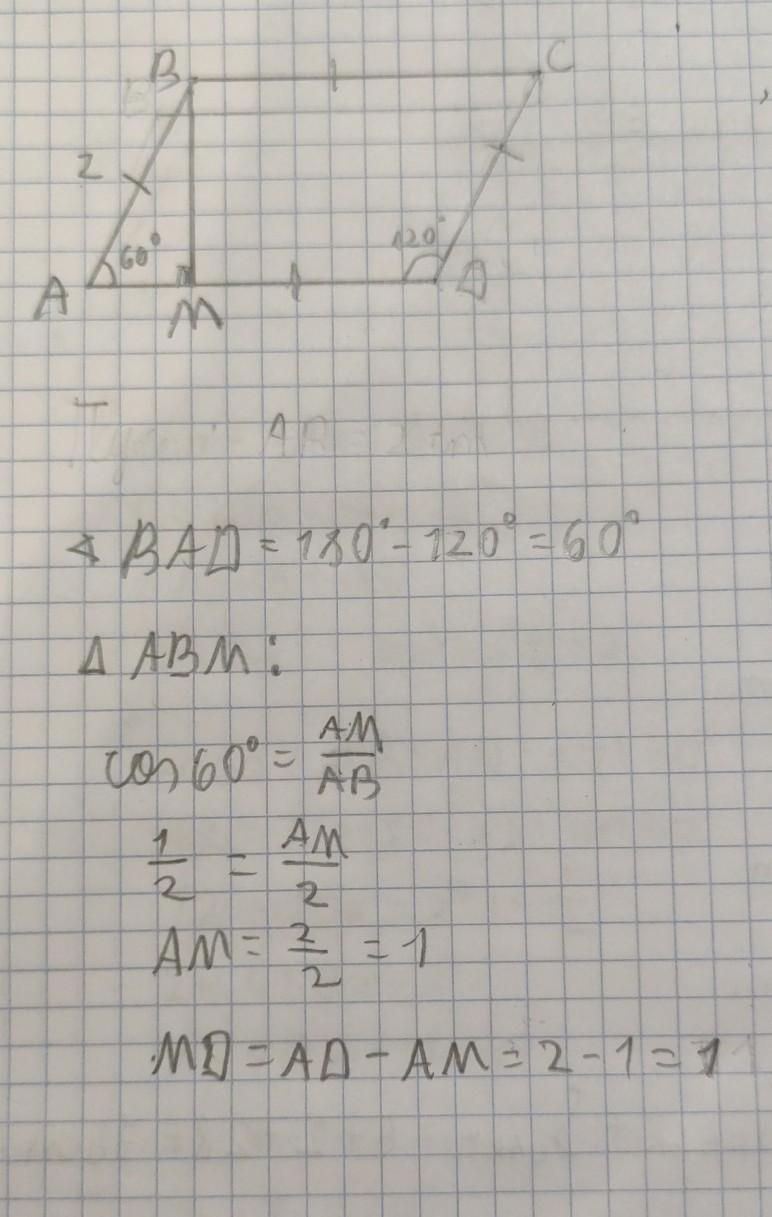 B C
2
60° 120°
A M D
∢ BAD = 180° - 120° = 60°
Δ ABM:
cos 60° = AM/AB
1/2 = AM/2
AM = 2/2 = 1
MD = AD - AM = 2 - 1 = 1